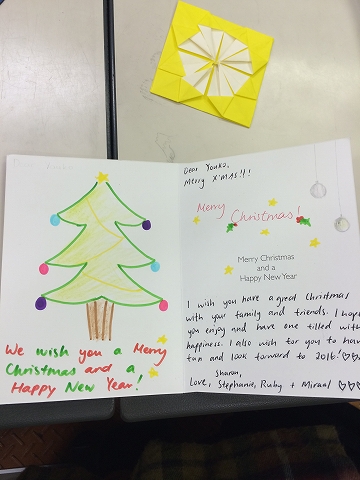 We wish you a Merry
Christmas and a
Happy New Year!
Dear Youka,
Merry X'MAS!!!
Merry
Christmas!
Merry Christmas
and a
Happy New Year
I wish you have a great Christmas
with your family and friends. I hope
you enjoy and have one filled with
happiness. I also wish for you to have
fun and look forward to 2016!♡♡♡
Sharon,
Love, Stephanie, Ruby + Miraal ♡♡♡